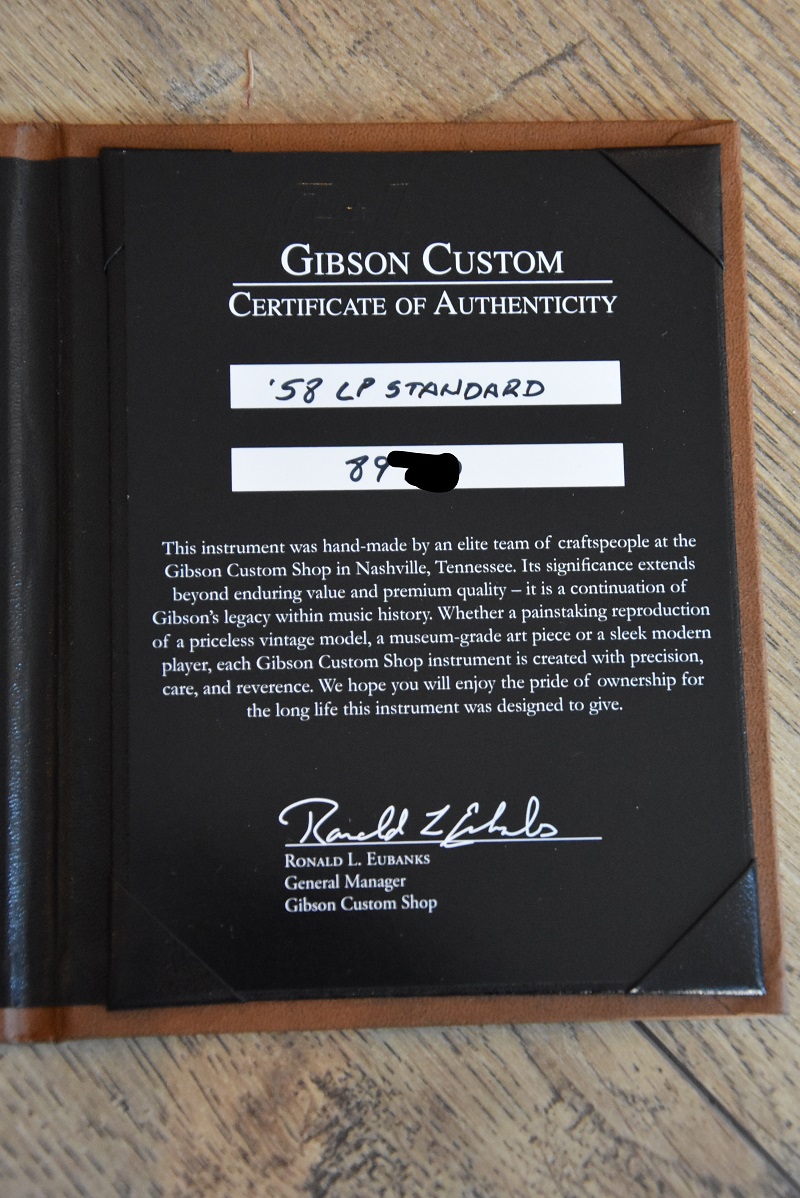 GIBSON CUSTOM
CERTIFICATE OF AUTHENTICITY
'58 LP STANDARD
89
This instrument was hand-made by an elite team of craftspeople at the
Gibson Custom Shop in Nashville, Tennessee. Its significance extends
beyond enduring value and premium quality – it is a continuation of
Gibson's legacy within music history. Whether a painstaking reproduction
of a priceless vintage model, a museum-grade art piece or a sleek modern
player, each Gibson Custom Shop instrument is created with precision,
care, and reverence. We hope you will enjoy the pride of ownership for
the long life this instrument was designed to give.
Ronald L Eubanks
RONALD L. EUBANKS
General Manager
Gibson Custom Shop